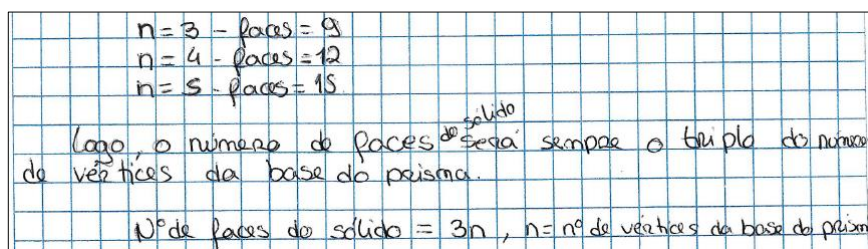 n = 3 - faces = 9
n = 4 - faces = 12
n = 5 - faces = 15
Logo, o número de faces do sólido será sempre o triplo do número
de vértices da base do prisma.
Nº de faces do sólido = 3n, n = nº de vértices da base do prism